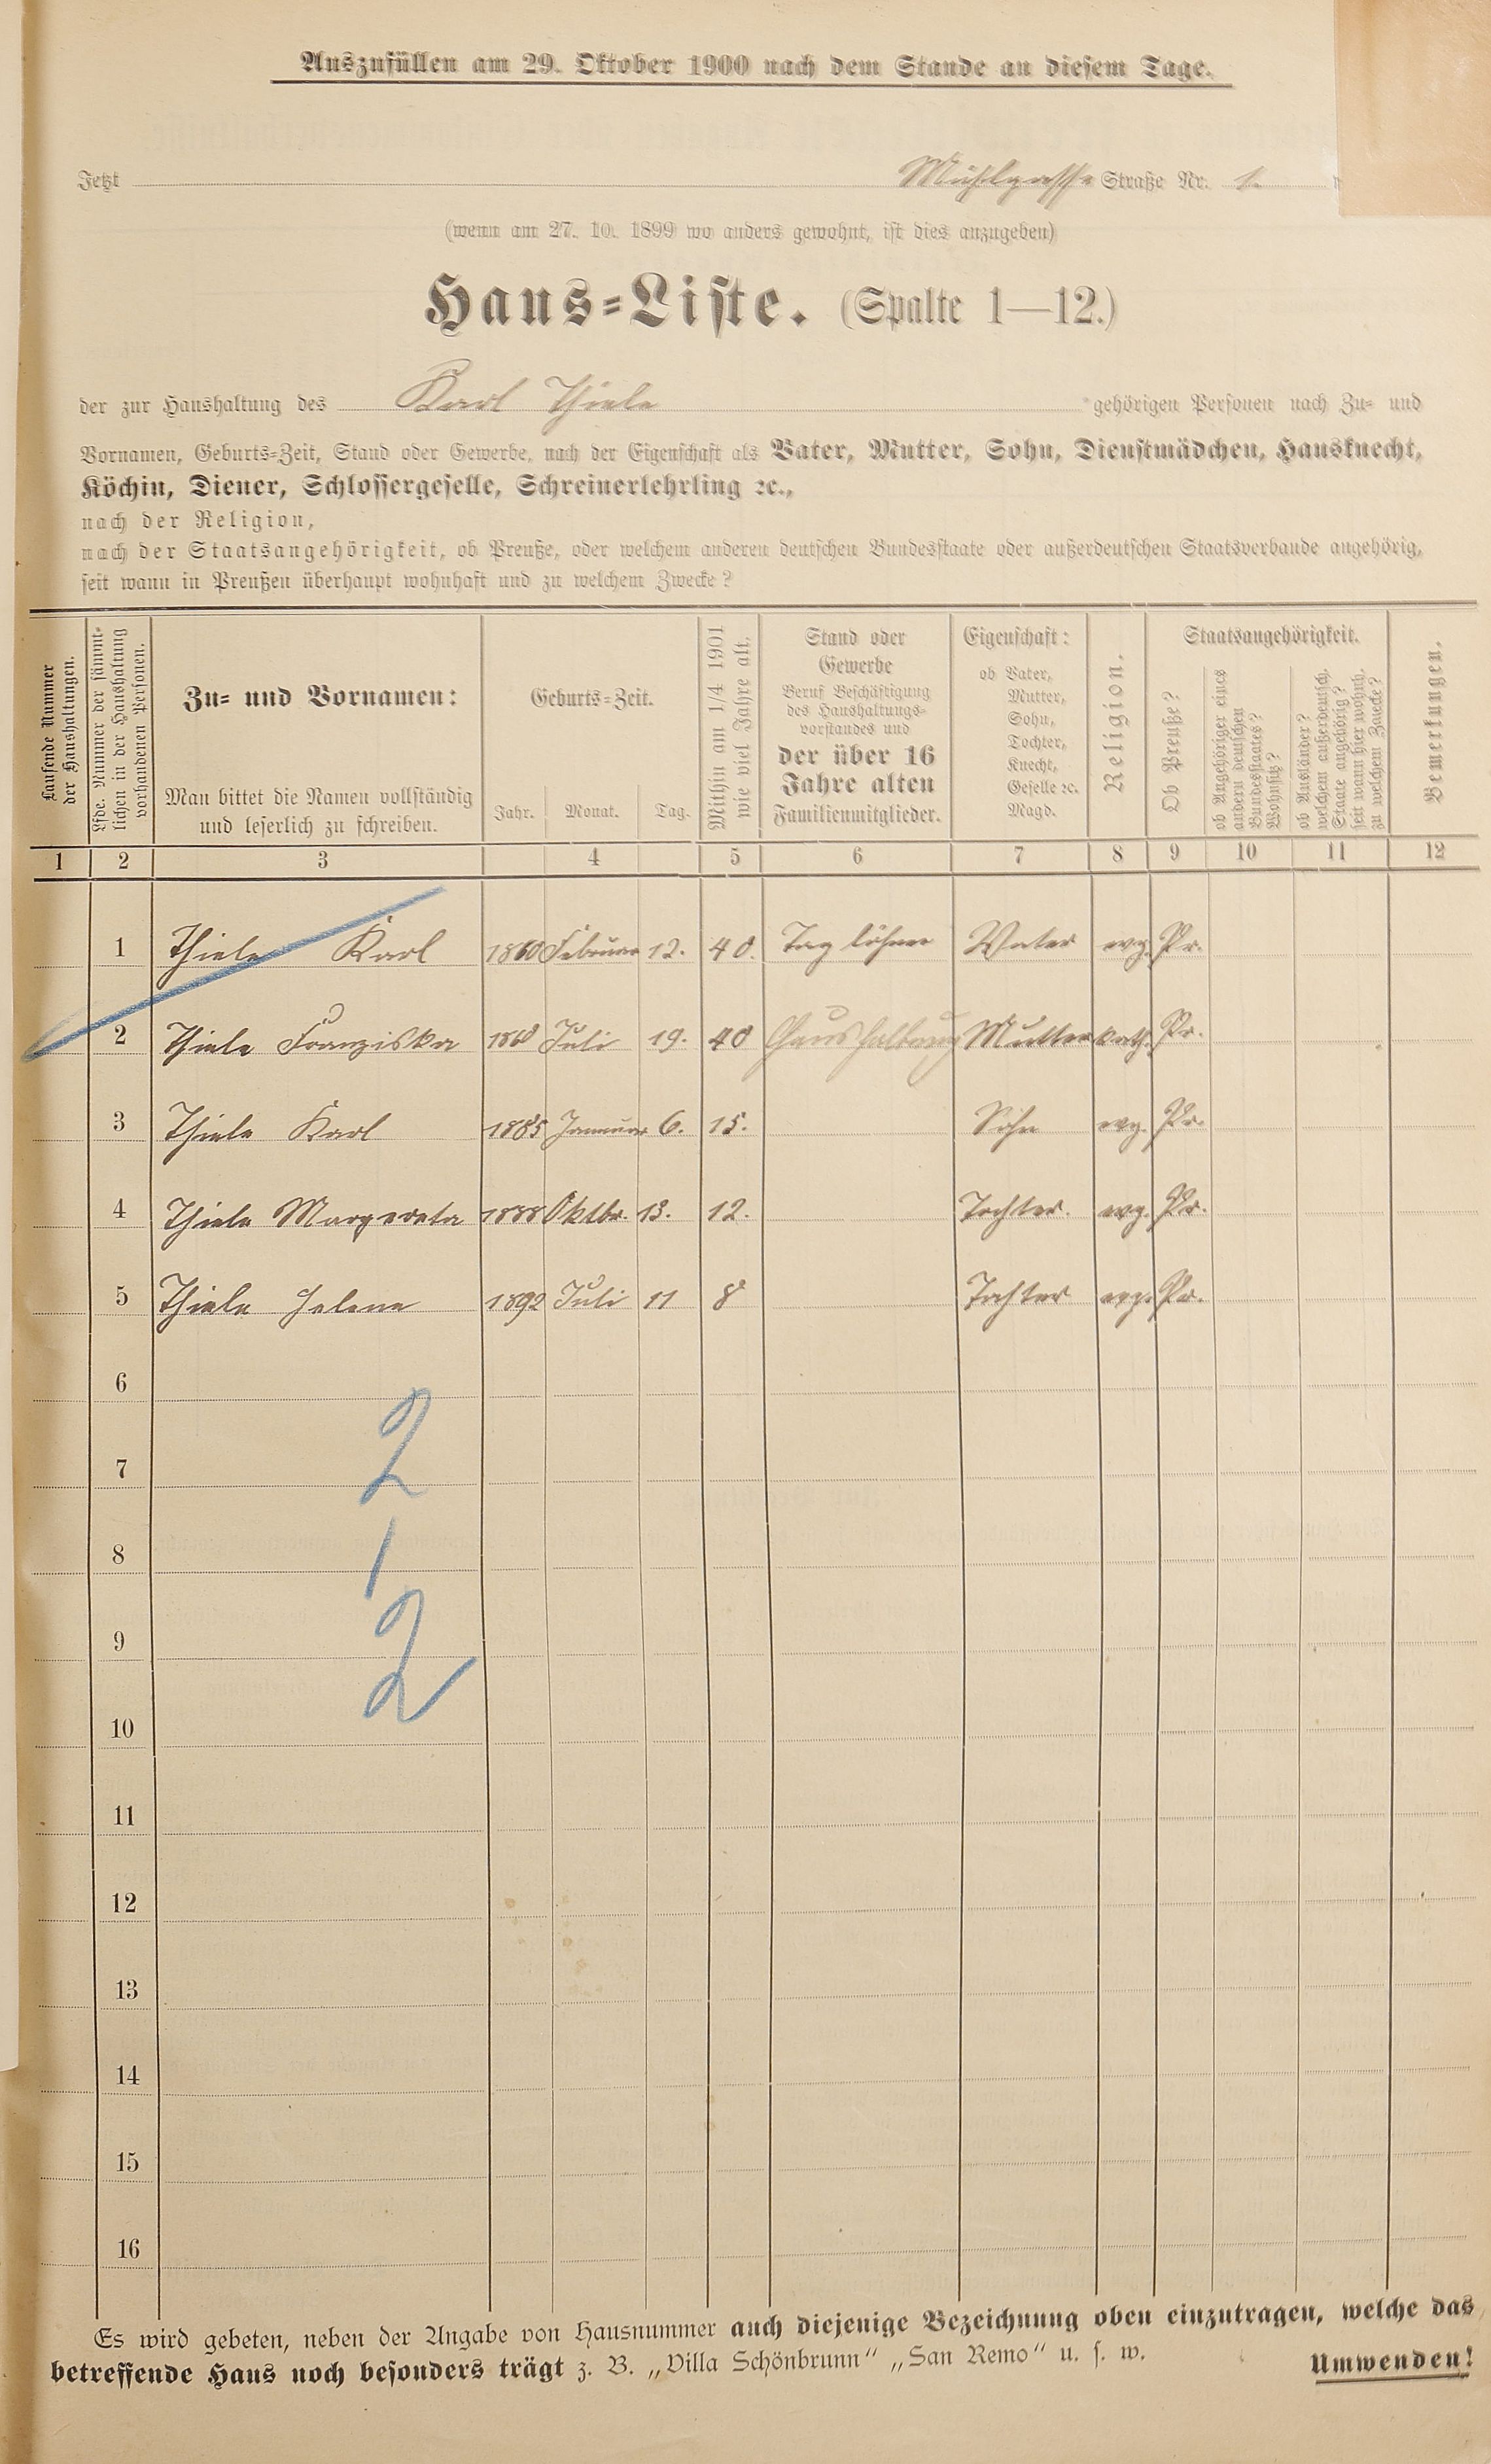 Auszufüllen am 29. Oktober 1900 nach dem Stande an diesem Tage.
Jetzt Mühlgasse Straße Nr. 1.
(wenn am 27. 10. 1899 wo anders gewohnt, ist dies anzugeben)
Haus=Liste. (Spalte 1—12.)
der zur Haushaltung des Karl Thiele gehörigen Personen nach Zu= und
Vornamen, Geburts=Zeit, Stand oder Gewerbe, nach der Eigenschaft als Vater, Mutter, Sohn, Dienstmädchen, Hausknecht,
Köchin, Diener, Schlossergeselle, Schreinerlehrling ꝛc.,
nach der Religion,
nach der Staatsangehörigkeit, ob Preuße, oder welchem anderen deutschen Bundesstaate oder außerdeutschen Staatsverbande angehörig,
seit wann in Preußen überhaupt wohnhaft und zu welchem Zwecke?
Laufende Nummer
der Haushaltungen.
Lfde. Nummer der sämmt=
lichen in der Haushaltung
vorhandenen Personen.
Zu= und Vornamen:
Man bittet die Namen vollständig
und leserlich zu schreiben.
Geburts=Zeit.
Jahr. Monat. Tag.
Mithin am 1/4 1901
wie viel Jahre alt.
Stand oder
Gewerbe
Beruf Beschäftigung
des Haushaltungs=
vorstandes und
der über 16
Jahre alten
Familienmitglieder.
Eigenschaft:
ob Vater,
Mutter,
Sohn,
Tochter,
Knecht,
Geselle ꝛc.
Magd.
Religion.
Staatsangehörigkeit.
Ob Preuße?
ob Angehöriger eines
andern deutschen
Bundesstaates?
Wohnsitz?
ob Ausländer?
welchem außerdeutsch.
Staate angehörig?
seit wann hier wohnh.
zu welchem Zwecke?
Bemerkungen.
1 2 3 4 5 6 7 8 9 10 11 12
1 Thiele Karl 1860 Februar 12. 40. Taglöhner Vater evg. Pr.
2 Thiele Franziska 1860 Juli 19. 40 Haushaltung Mutter kath. Pr.
3 Thiele Karl 1885 Januar 6. 15. Sohn evg. Pr.
4 Thiele Margereta 1888 Oktbr. 13. 12. Tochter. evg. Pr.
5 Thiele Helene 1892 Juli 11 8 Tochter evg. Pr.
6
2
7
8
1
9
2
10
11
12
13
14
15
16
Es wird gebeten, neben der Angabe von Hausnummer auch diejenige Bezeichnung oben einzutragen, welche das
betreffende Haus noch besonders trägt z. B. „Villa Schönbrunn“ „San Remo“ u. s. w.
Umwenden!